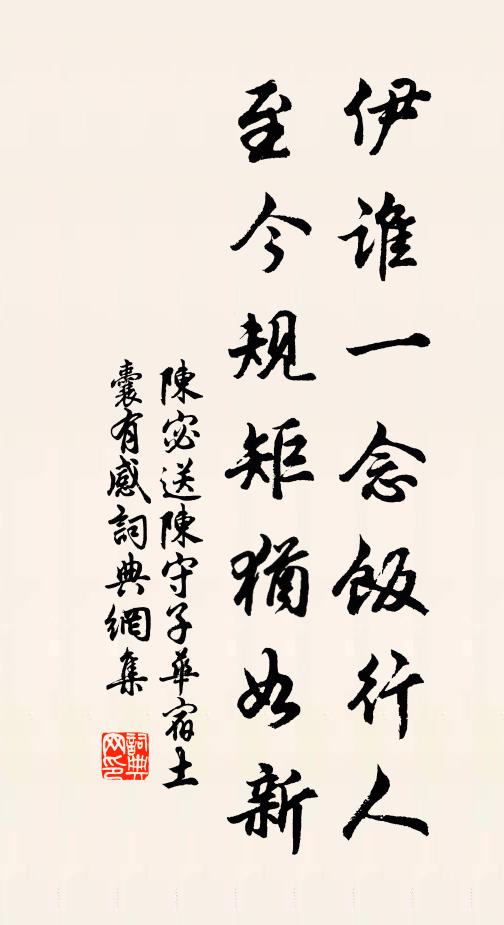 伊誰一念飯行人
至今規矩猶如新
陳宓送陳守子華宿土
囊有感詞典網集
詞典网印